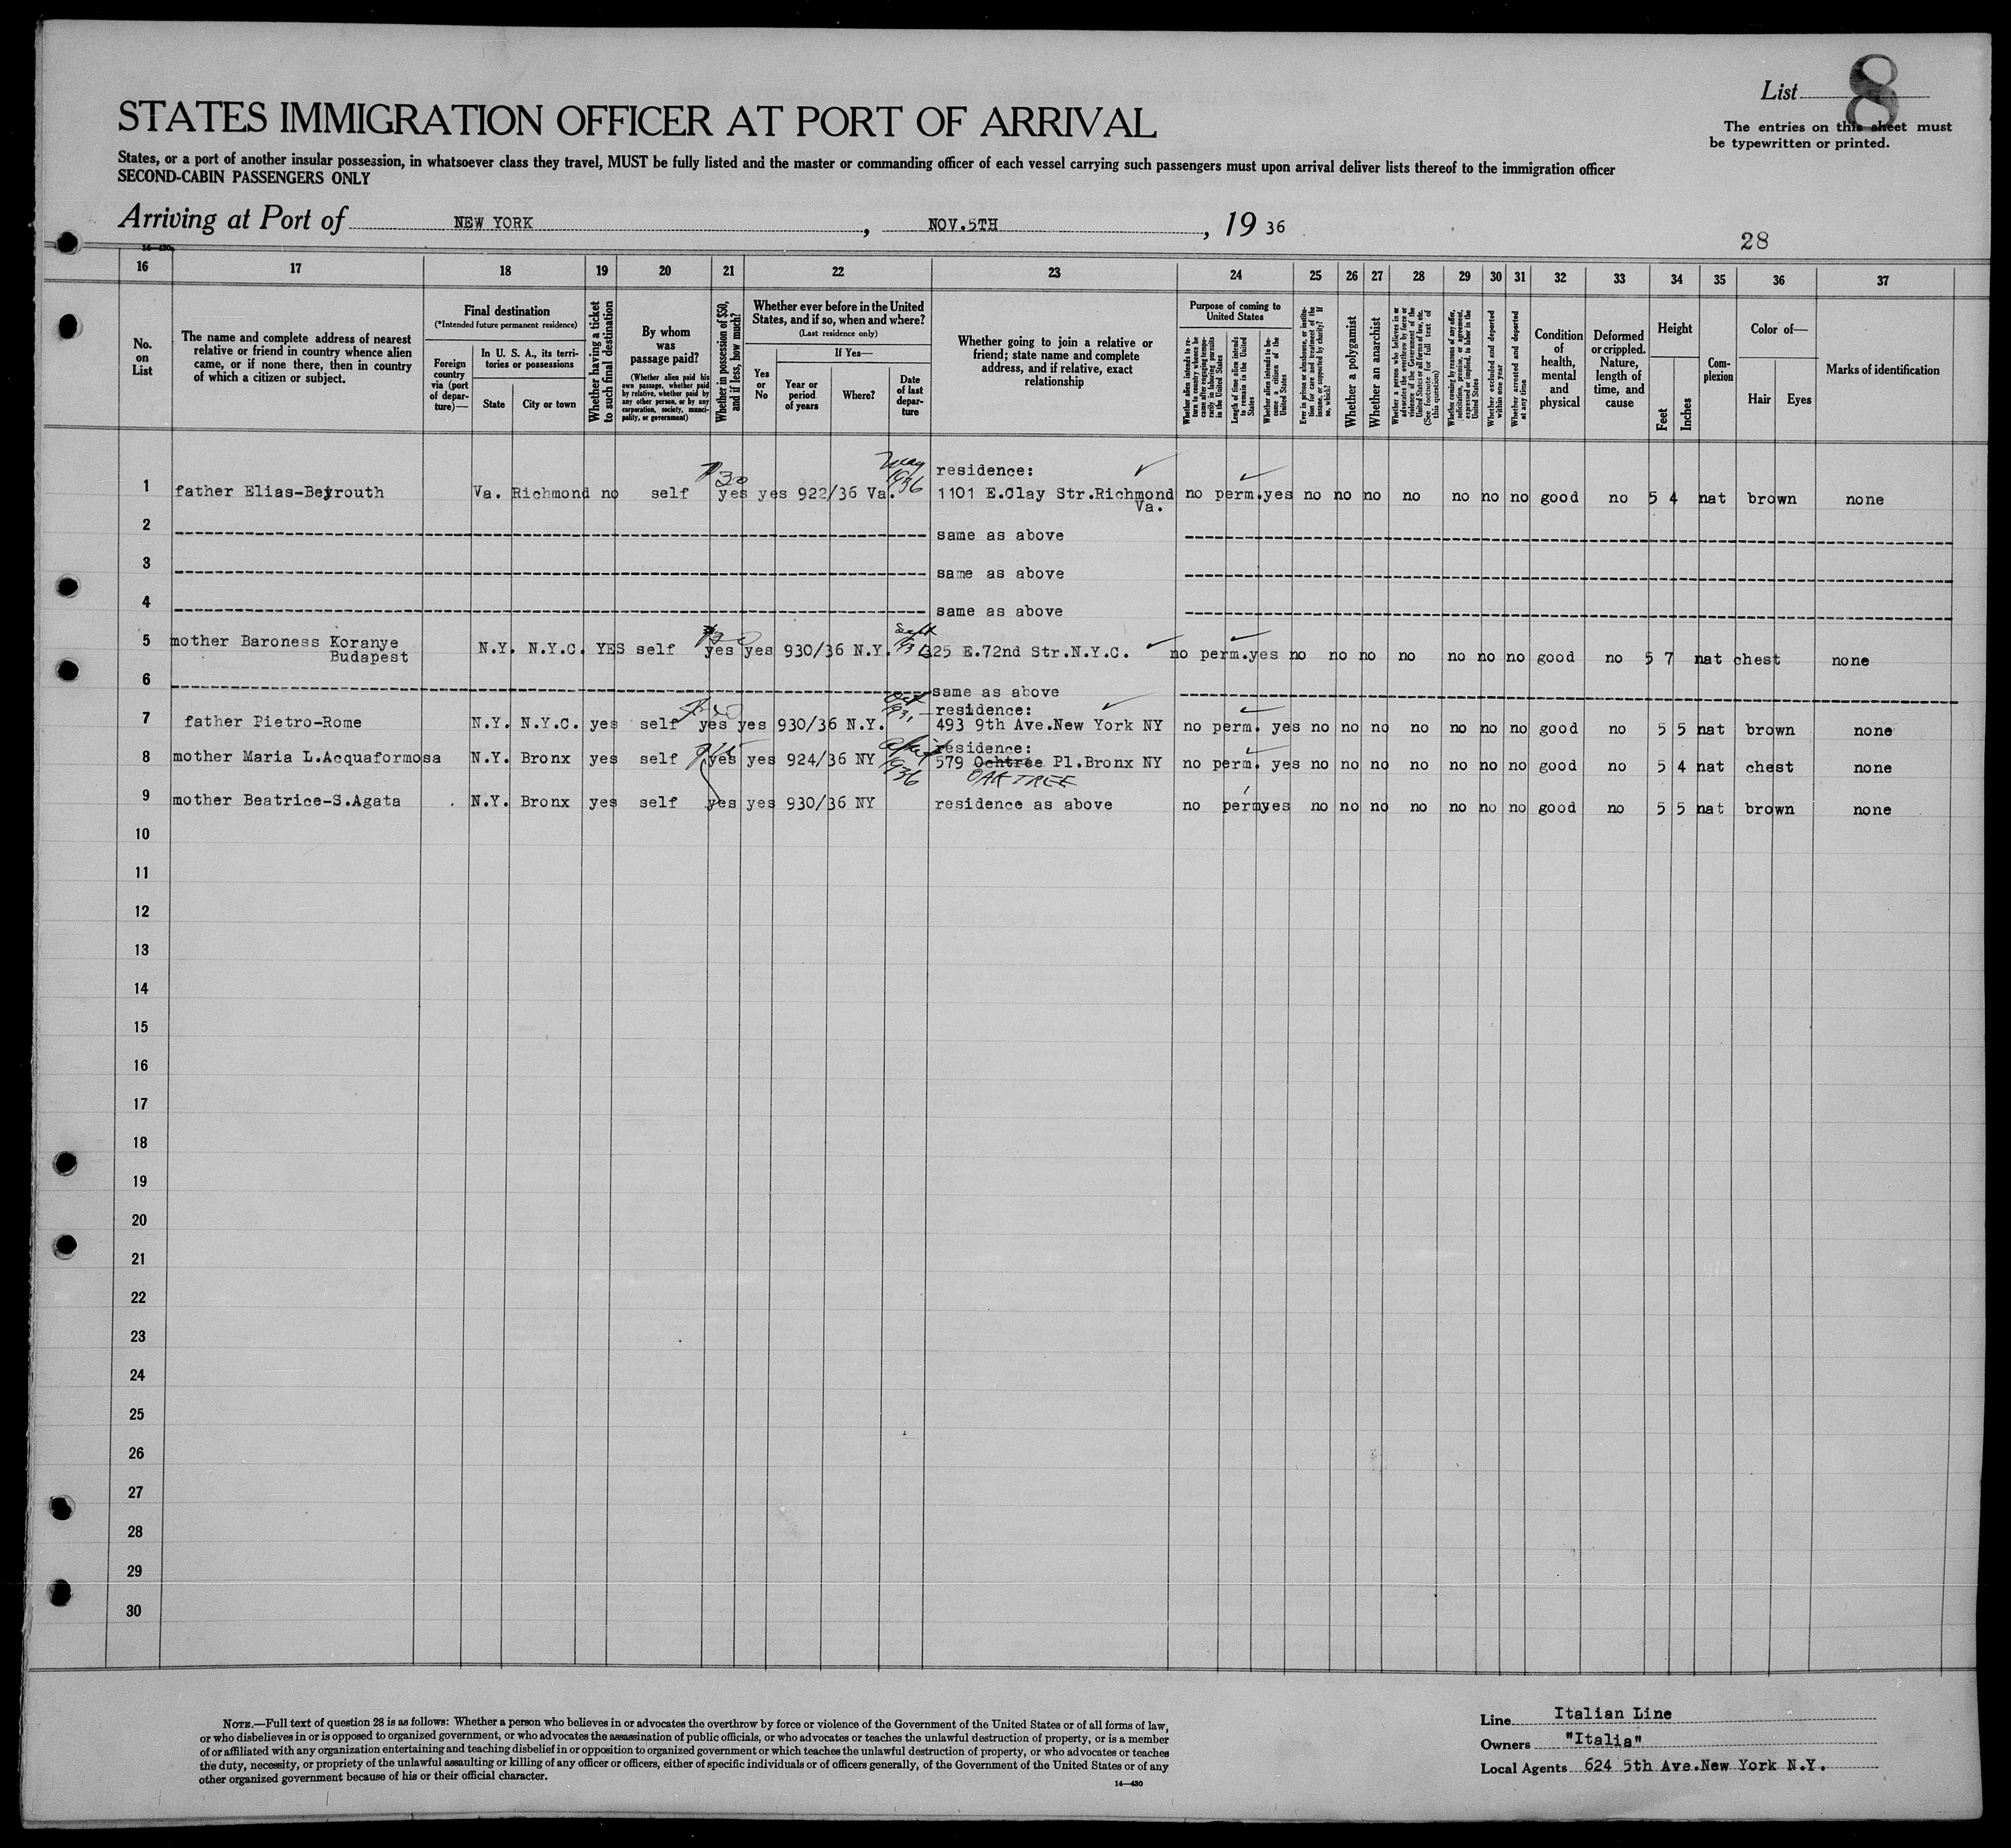 List 8
The entries on this sheet must
be typewritten or printed.
STATES IMMIGRATION OFFICER AT PORT OF ARRIVAL
States, or a port of another insular possession, in whatsoever class they travel, MUST be fully listed and the master or commanding officer of each vessel carrying such passengers must upon arrival deliver lists thereof to the immigration officer
SECOND-CABIN PASSENGERS ONLY
Arriving at Port of NEW YORK, NOV.5TH, 19 36
28
14-430
16 17 18 19 20 21 22 23 24 25 26 27 28 29 30 31 32 33 34 35 36 37
No. on List
The name and complete address of nearest
relative or friend in country whence alien
came, or if none there, then in country
of which a citizen or subject.
Final destination
(*Intended future permanent residence)
Foreign country via (port of departure)—
In U. S. A., its territories or possessions
State
City or town
Whether having a ticket to such final destination
By whom was passage paid?
(Whether alien paid his own passage, whether paid by relative, whether paid by any other person, or by any corporation, society, municipality, or government)
Whether in possession of $50, and if less, how much?
Whether ever before in the United States, and if so, when and where?
(Last residence only)
Yes or No
If Yes—
Year or period of years
Where?
Date of last departure
Whether going to join a relative or
friend; state name and complete
address, and if relative, exact
relationship
Purpose of coming to United States
Whether alien intends to return to country whence he came after engaging temporarily in laboring pursuits in the United States
Length of time alien intends to remain in the United States
Whether alien intends to become a citizen of the United States
Ever in prison or almshouse, or institution for care and treatment of the insane, or supported by charity? If so, which?
Whether a polygamist
Whether an anarchist
Whether a person who believes in or advocates the overthrow by force or violence of the Government of the United States or all forms of law, etc. (See footnote for full text of this question)
Whether coming by reasons of any offer, solicitation, promise, or agreement, expressed or implied, to labor in the United States
Whether excluded and deported within one year
Whether arrested and deported at any time
Condition of health, mental and physical
Deformed or crippled. Nature, length of time, and cause
Height
Feet
Inches
Complexion
Color of—
Hair
Eyes
Marks of identification
1 father Elias-Beyrouth Va. Richmond no self $30 yes yes 922/36 Va. May 1936 residence: 1101 E.Clay Str.Richmond Va. no perm. yes no no no no no no no good no 5 4 nat brown none
2 same as above
3 same as above
4 same as above
5 mother Baroness Koranye Budapest N.Y. N.Y.C. YES self yes yes 930/36 N.Y. Sept 325 E.72nd Str.N.Y.C. no perm. yes no no no no no no no good no 5 7 nat chest none
6 same as above
7 father Pietro-Rome N.Y. N.Y.C. yes self yes yes 930/36 N.Y. residence: 493 9th Ave.New York NY no perm. yes no no no no no no no good no 5 5 nat brown none
8 mother Maria L.Acquaformosa N.Y. Bronx yes self yes yes 924/36 NY 1936 residence: 579 Ochtree Pl.Bronx NY OAK TREE no perm. yes no no no no no no no good no 5 4 nat chest none
9 mother Beatrice-S.Agata N.Y. Bronx yes self yes yes 930/36 NY residence as above no perm yes no no no no no no no good no 5 5 nat brown none
10
11
12
13
14
15
16
17
18
19
20
21
22
23
24
25
26
27
28
29
30
NOTE.—Full text of question 28 is as follows: Whether a person who believes in or advocates the overthrow by force or violence of the Government of the United States or of all forms of law,
or who disbelieves in or is opposed to organized government, or who advocates the assassination of public officials, or who advocates or teaches the unlawful destruction of property, or is a member
of or affiliated with any organization entertaining and teaching disbelief in or opposition to organized government or which teaches the unlawful destruction of property, or who advocates or teaches
the duty, necessity, or propriety of the unlawful assaulting or killing of any officer or officers, either of specific individuals or of officers generally, of the Government of the United States or of any
other organized government because of his or their official character.
14—430
Line Italian Line
Owners "Italia"
Local Agents 624 5th Ave.New York N.Y.